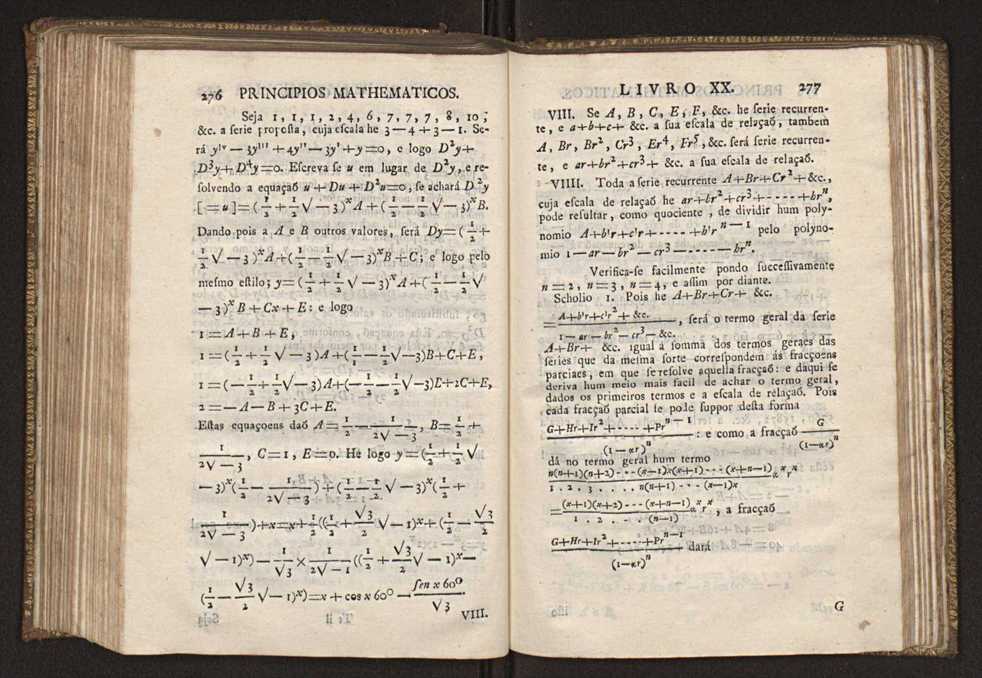 276 PRINCIPIOS MATHEMATICOS.
Seja 1, 1, 1, 2, 4, 6, 7, 7, 7, 8, 10;
&c. a ſerie propoſta, cuja eſcala he 3—4+3—1. Se-
rá yᴵⱽ — 3yᴵᴵᴵ +4yᴵᴵ— 3yᴵ+y=0, e logo D²y+
D³y+D⁴y=0. Eſcreva ſe u em lugar de D²y, e re-
ſolvendo a equaçaõ u+Du+D²u=0, ſe achará D²y
[=u]=(1/2+1/2√—3)ˣA+(1/2—1/2√—3)ˣB.
Dando pois a A e B outros valores, ſerá Dy=(1/2+
1/2√—3)ˣA+(1/2—1/2√—3)ˣB+C; e logo pelo
meſmo eſtilo; y=(1/2+1/2√—3)ˣA+(1/2—1/2√
—3)ˣB+Cx+E: e logo
1=A+B+E,
1=(1/2+1/2√—3)A+(1/2—1/2√—3)B+C+E,
1=(—1/2+1/2√—3)A+(—1/2—1/2√—3)B+2C+E,
2=—A—B+3C+E.
Eſtas equaçoens daõ A=1/2—1/(2√—3), B=1/2+
1/(2√—3), C=1, E=0. He logo y=(1/2+1/2√
—3)ˣ(1/2—1/(2√—3))+(1/2—1/2√—3)ˣ(1/2+
1/(2√—3))+x=x+1/2((1/2+√3/2√—1)ˣ+(1/2—√3/2
√—1)ˣ)—1/√3×1/(2√—1)((1/2+√3/2√—1)ˣ—
(1/2—√3/2√—1)ˣ)=x+cos x 60⁰—ſen x 60⁰/√3
VIII.
LIVRO XX. 277
VIII. Se A, B, C, E, F, &c. he ſerie recurren-
te, e a+b+c+ &c. a ſua eſcala de relaçaõ, tambem
A, Br, Br², Cr³, Er⁴, Fr⁵, &c. ſerá ſerie recurren-
te, e ar+br²+cr³+ &c. a ſua eſcala de relaçaõ.
VIIII. Toda a ſerie recurrente A+Br+Cr²+&c.,
cuja eſcala de relaçaõ he ar+br²+cr³+----+brⁿ,
póde reſultar, como quociente, de dividir hum poly-
nomio A+b'r+c'r+-----+b'rⁿ⁻¹ pelo polyno-
mio 1—ar—br²—cr³------brⁿ.
Verifica-ſe facilmente pondo ſucceſſivamente
n=2, n=3, n=4, e aſſim por diante.
Scholio 1. Pois he A+Br+Cr+ &c.
=(A+b'r+c'r²+ &c.)/(1—ar—br²—cr³— &c.), ſerá o termo geral da ſerie
A+Br+ &c. igual á ſomma dos termos geraes das
ſeries que da meſma ſorte correſpondem ás fracçoens
parciaes, em que ſe reſolve aquella fracçaõ: e daqui ſe
deriva hum meio mais facil de achar o termo geral,
dados os primeiros termos e a eſcala de relaçaõ. Pois
cada fracçaõ parcial ſe póde ſuppor deſta forma
(G+Hr+Ir²+----+Prⁿ⁻¹)/(1—αr)ⁿ : e como a fracçaõ G/(1—αr)ⁿ
dá no termo geral hum termo
n(n+1)(n+2)---(x—1)x(x+1)---(x+n—1)/1.2.3....n(n+1)---(x—1)x αˣrˣ
=(x+1)(x+2)---(x+n—1)/1.2.-.-(n—1) αˣrˣ, a fracçaõ
(G+Hr+Ir²+----+Prⁿ⁻¹)/(1—αr)ⁿ dará
G